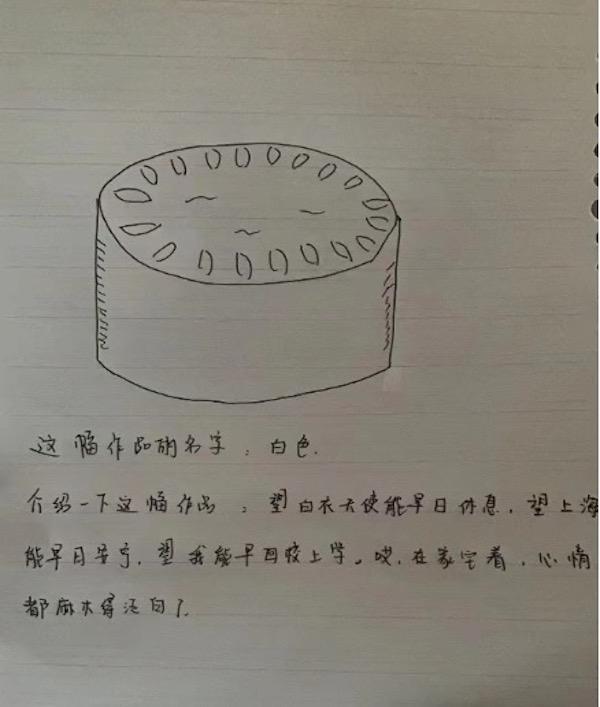 这幅作品的名字：白色.
介绍一下这幅作品：望白衣天使能早日休息，望上海
能早日安宁，望我能早回校上学。哎，在家宅着，心情
都麻木得泛白了